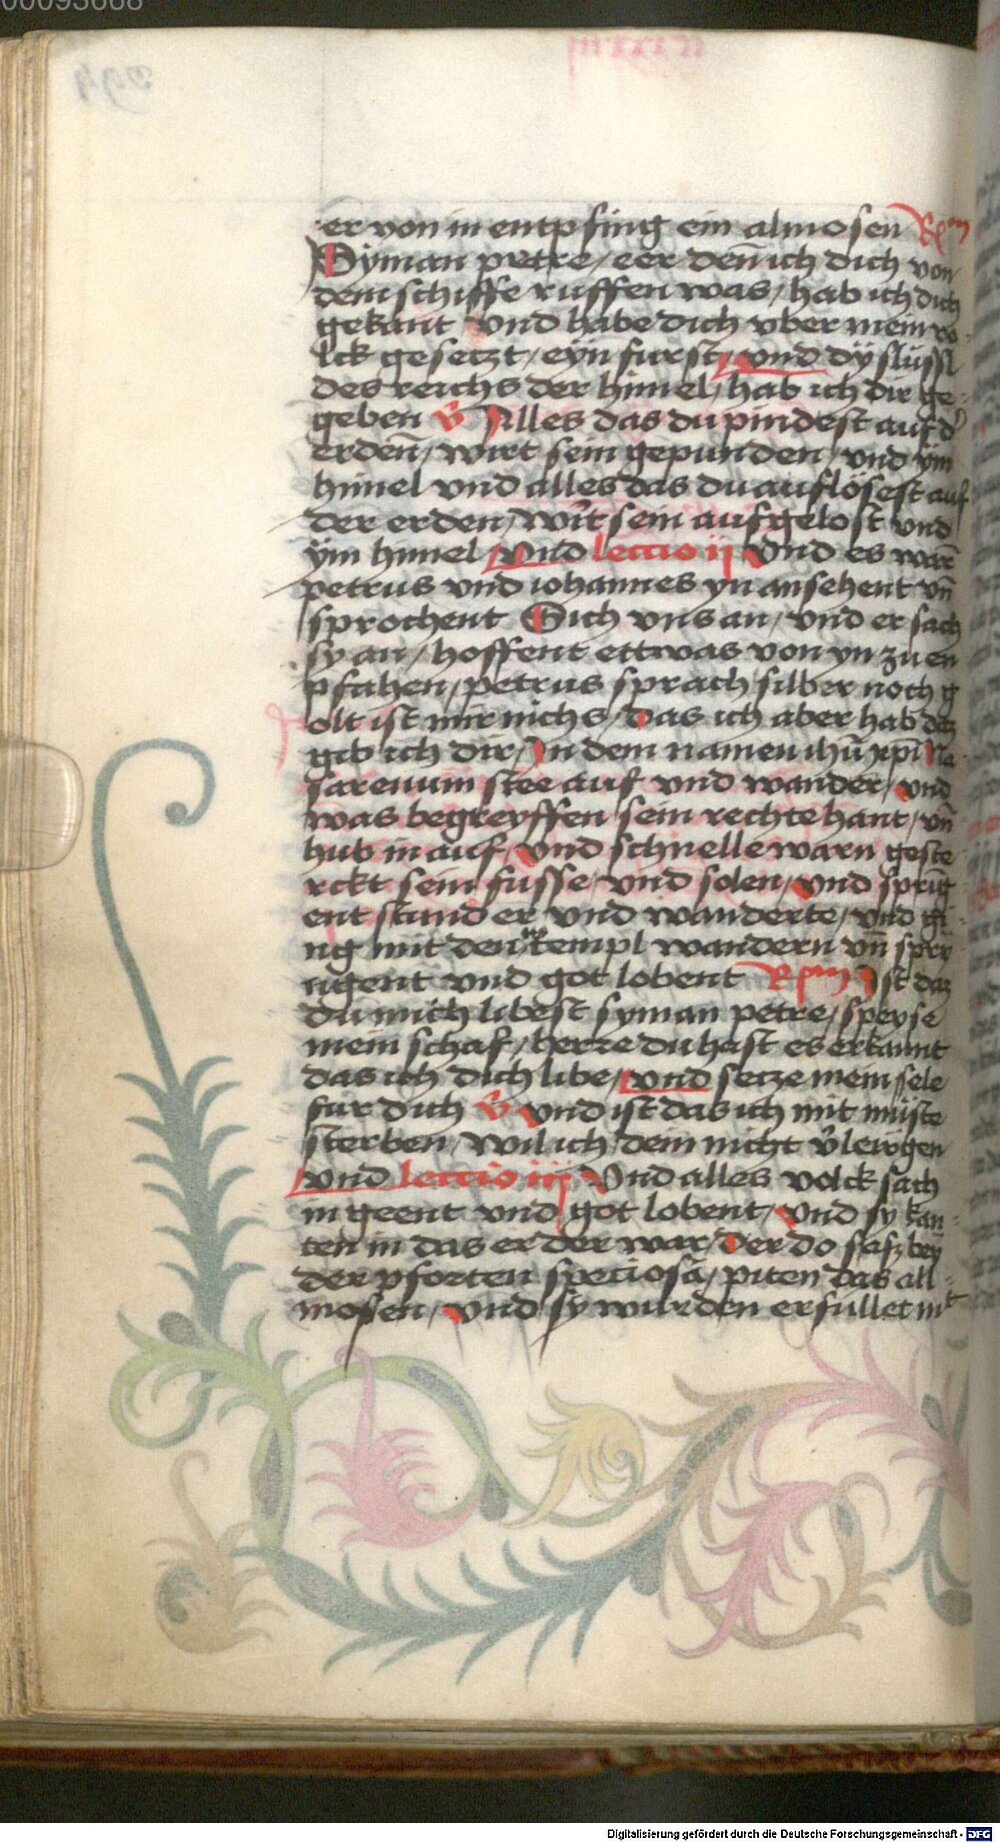 00093668
er von in entpfing ein almosen Rm
Syman petre / eer den̄ ich dich von
dem schiffe ruffen was / hab ich dich
gekant / vnd habe dich vber mein vo-
lck gesetzt / eyn furst / vnd dÿ slüssl
des reichs der himel / hab ich dir ge-
geben V Alles das du pindest auf d'
erden̄ / wirt sein gepunden / vnd ym
himel vnd alles das du auflösest auf
der erden / wirt sein aufgelost vnd
ÿm himel / vnd lectio ij Vnd es warn̄
petrus vnd iohannes yn ansehent vn̄
sprochent Sich vns an / vnd er sach
sy an / hoffent ettwas von yn zu en
pfahen / petrus sprach silber noch g
olt ist mir nichs / das ich aber hab dez
gib ich dir / In dem namen ihū xp̄i Na
sarenum stee auf vnd wander / vnd
was begreyffen sein rechte hant / vn̄
hub in auf / vnd schnelle warn geste
rckt sein füsse / vnd solen / vnd spring
ent stund er vnd wanderte / vnd gi-
ng mit den in templ wandern vn̄ spri
ngent vnd got lobent Rm Ist daz
du mich libest syman petre / speyse
mein schaf / herre du hast es erkannt
das ich dich libe / vnd setze mein sele
fur dich V Vnd ist das ich mit müste
sterben / wil ich dein nicht v̄lewgen
vnd lectio iij Vnd alles volck sach
in geent vnd got lobent / vnd sy kan-
ten in das er der war / der do safz bey
der pforten speciosa / piten das all-
mosen / vnd sy wurden erfüllet mt
Digitalisierung gefördert durch die Deutsche Forschungsgemeinschaft - DFG